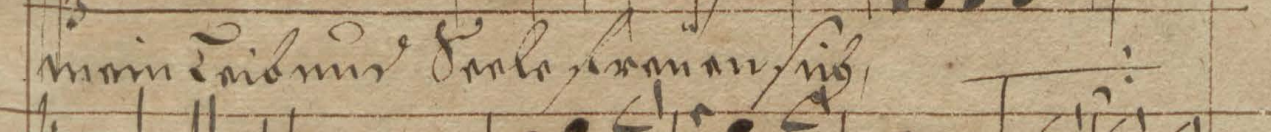 mein Leib und Seele freuen sich,